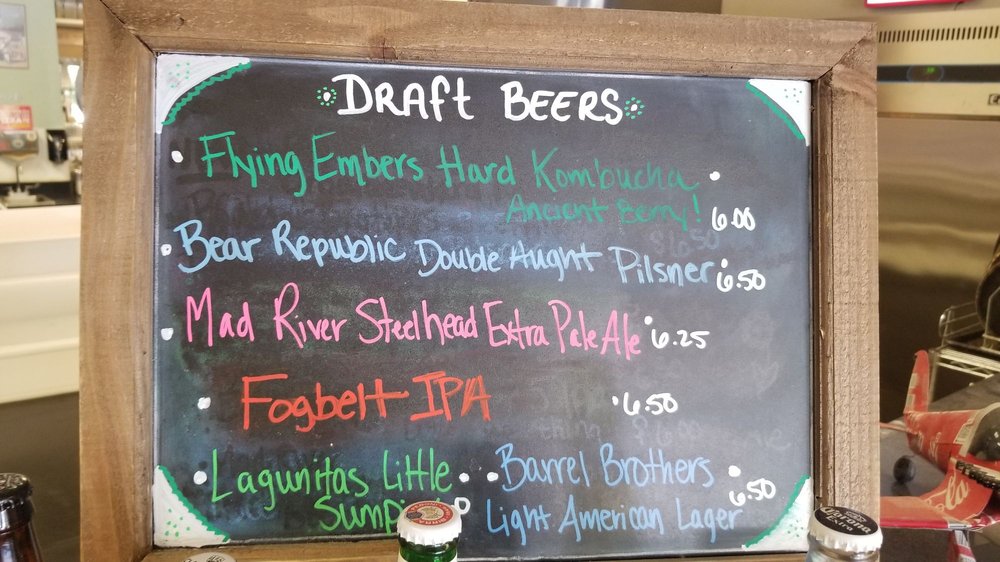 DRAft BEERS
Flying Embers Hard Kombucha
Ancient Berry!
6.00
Bear Republic Double Aught Pilsner 6.50
Mad River Steelhead Extra Pale Ale 6.25
Fogbelt IPA 6.50
Lagunitas Little
Barrel Brothers
Light American Lager 6.50
Corona
Extra